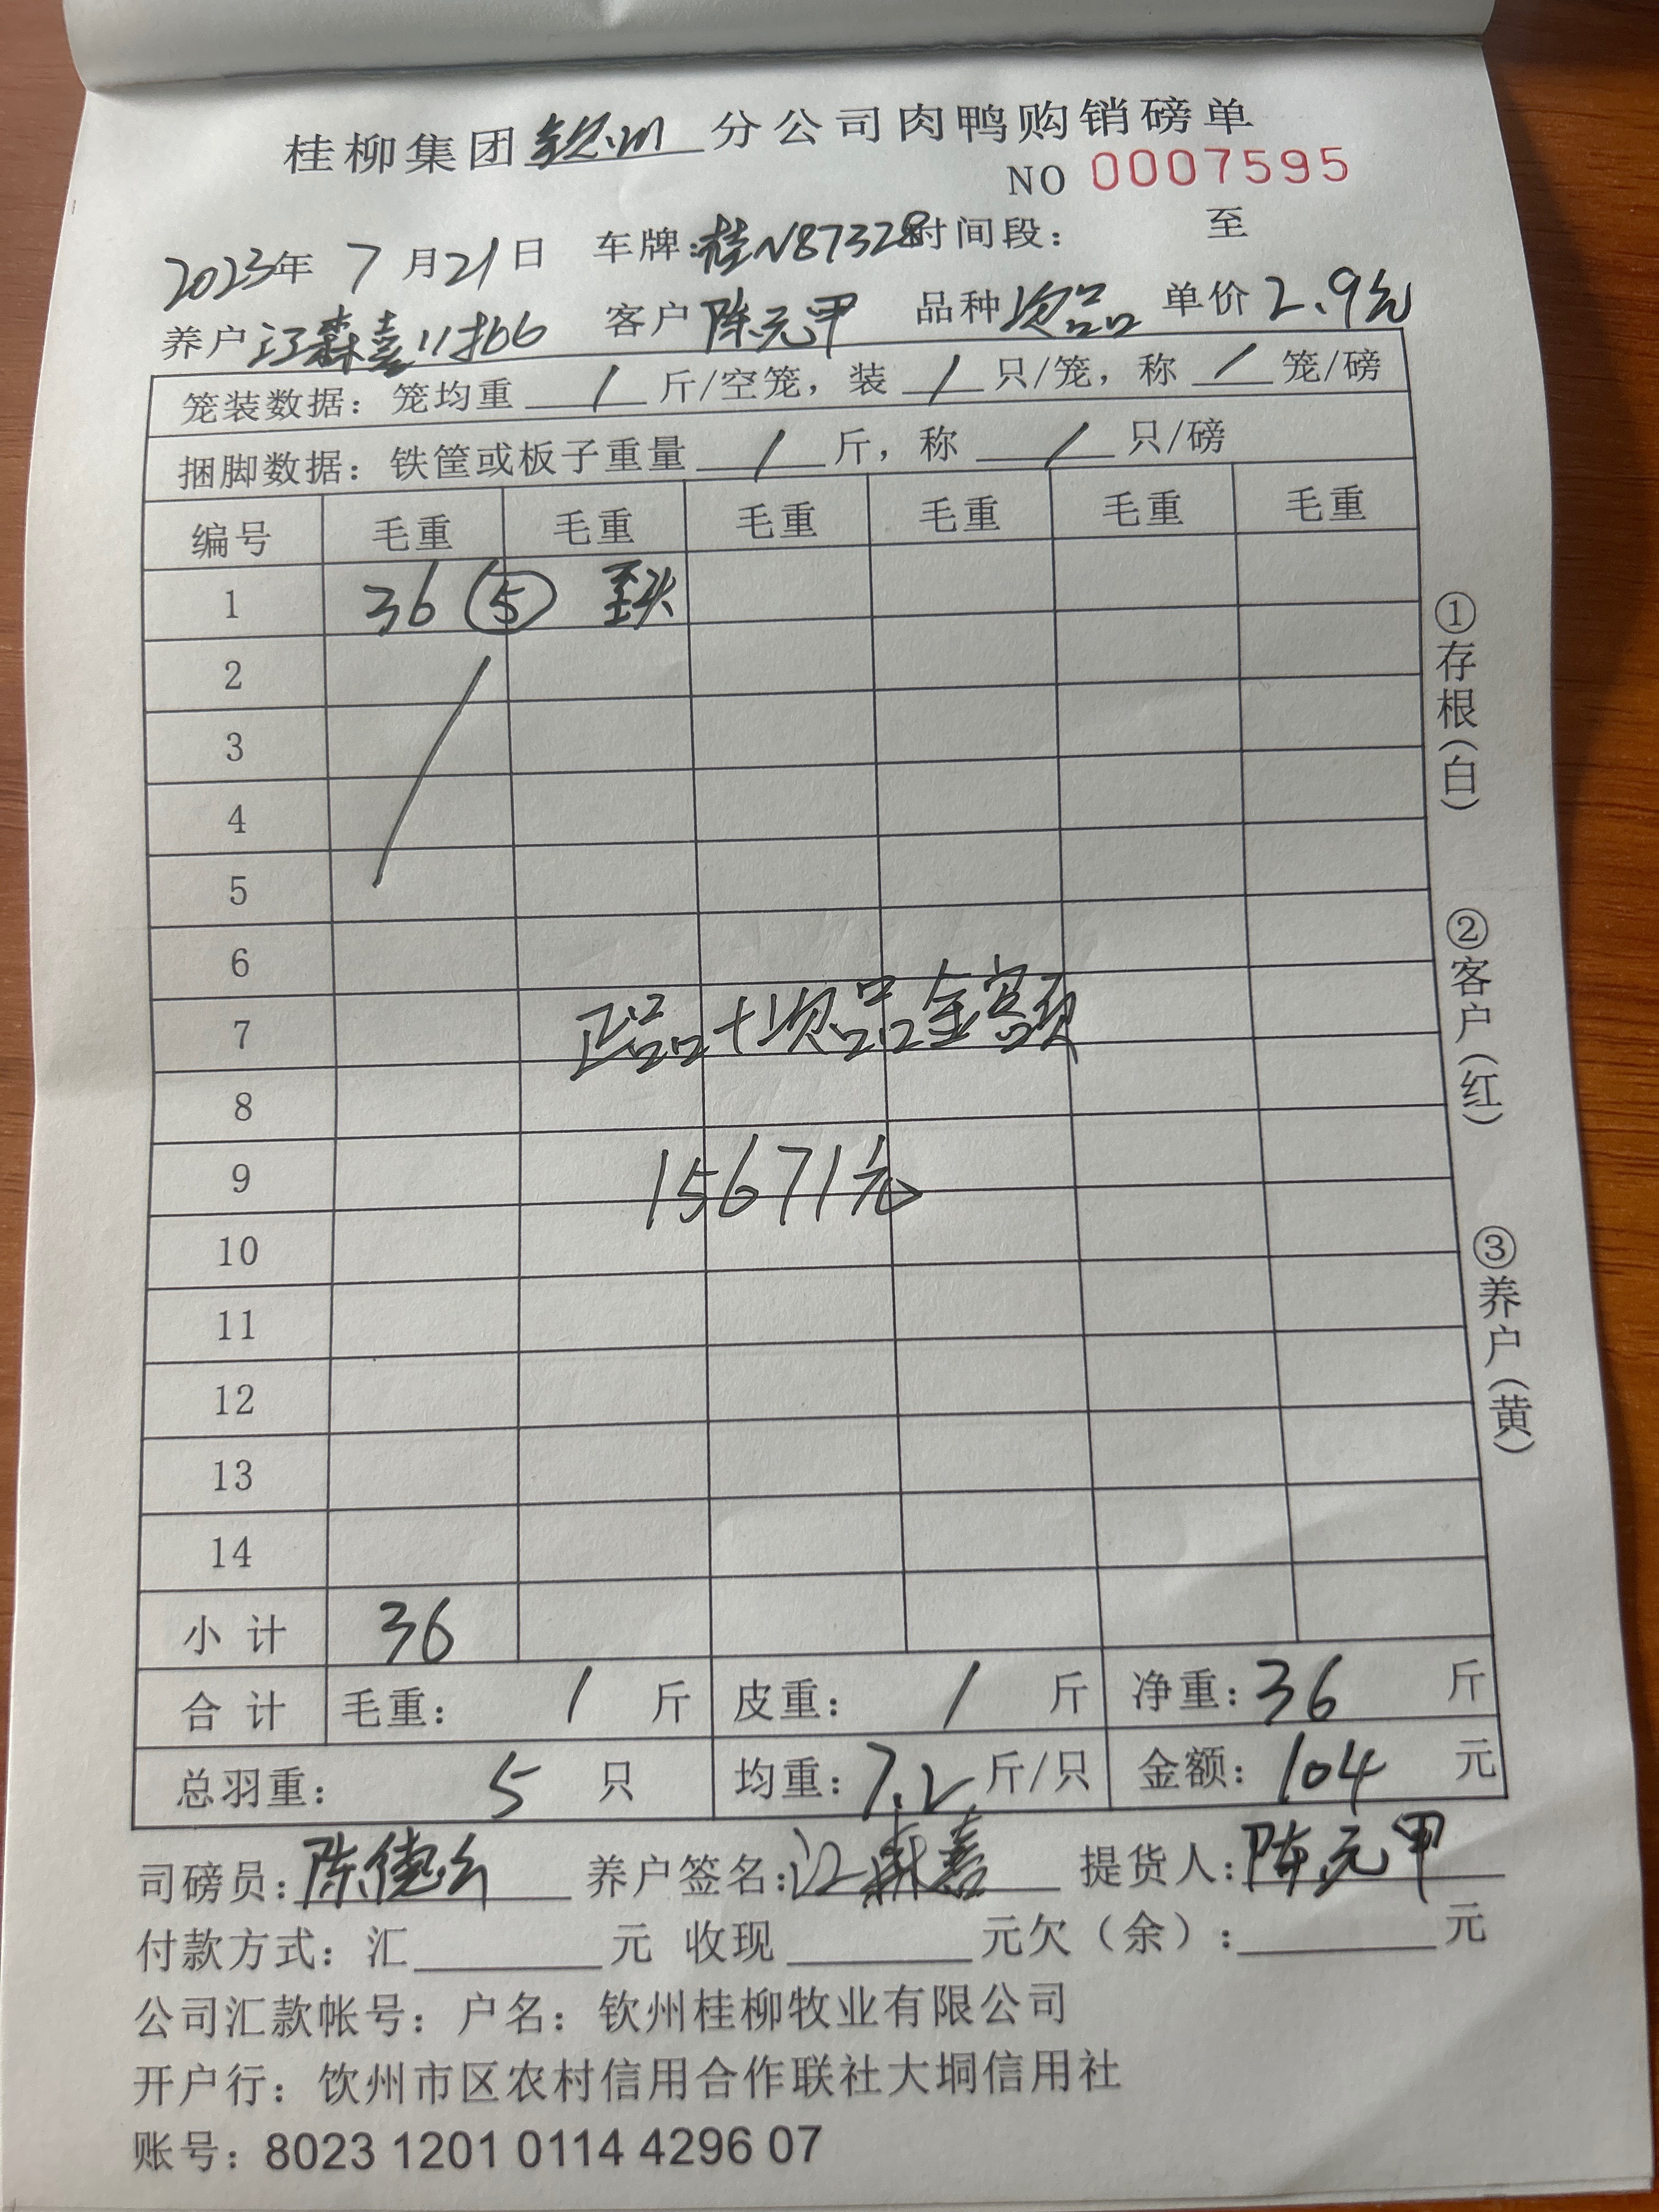 桂柳集团钦州分公司肉鸭购销磅单
NO 0007595
2023年 7月21日 车牌:桂N87328时间段: 至
养户江森喜11批6 客户陈元甲 品种次品 单价2.9元
笼装数据:笼均重 / 斤/空笼,装 / 只/笼,称 / 笼/磅
捆脚数据:铁筐或板子重量 / 斤,称 / 只/磅
编号 毛重 毛重 毛重 毛重 毛重 毛重
1 36 ⑤
2
3
4
5
6
7 正品+次品金额
8
9 15671元
10
11
12
13
14
小计 36
合计 毛重: / 斤 皮重: / 斤 净重:36 斤
总羽重: 5 只 均重:7.2斤/只 金额:104 元
司磅员:陈德 养户签名:江森喜 提货人:陈元甲
付款方式:汇______元 收现______元欠(余):______元
公司汇款帐号:户名:钦州桂柳牧业有限公司
开户行:饮州市区农村信用合作联社大垌信用社
账号:8023 1201 0114 4296 07
①存根(白)
②客户(红)
③养户(黄)